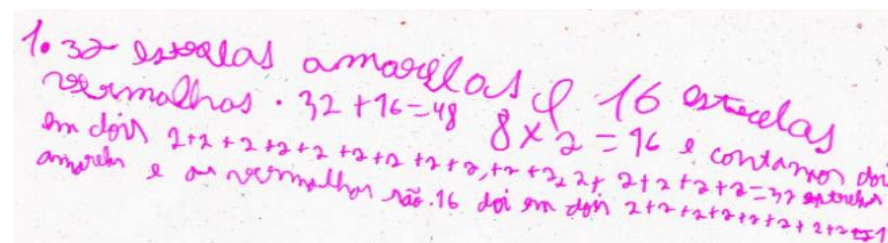 1. 32 estrelas amarelas e 16 estrelas
vermalhas. 32+16=48 8x2=16 e contamos doi
em dois 2+2+2+2+2+2+2+2+2,+2+2,2+2+2+2+2=32 estrelas
amarelas e as vermalhas são.16 doi em dois 2+2+2+2+2+2+2+2=1